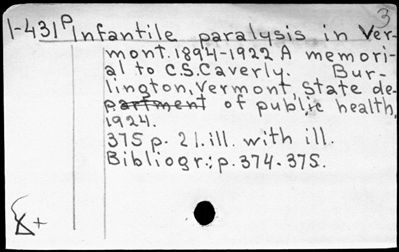 3
1-431 P Infantile paralysis in Ver-
mont. 1894-1922 A memori-
al to C.S.Caverly. Bur-
lington, Vermont, State de-
partment of public health,
1924.
375 p. 2 l. ill. with ill.
Bibliogr.: p. 374-375.